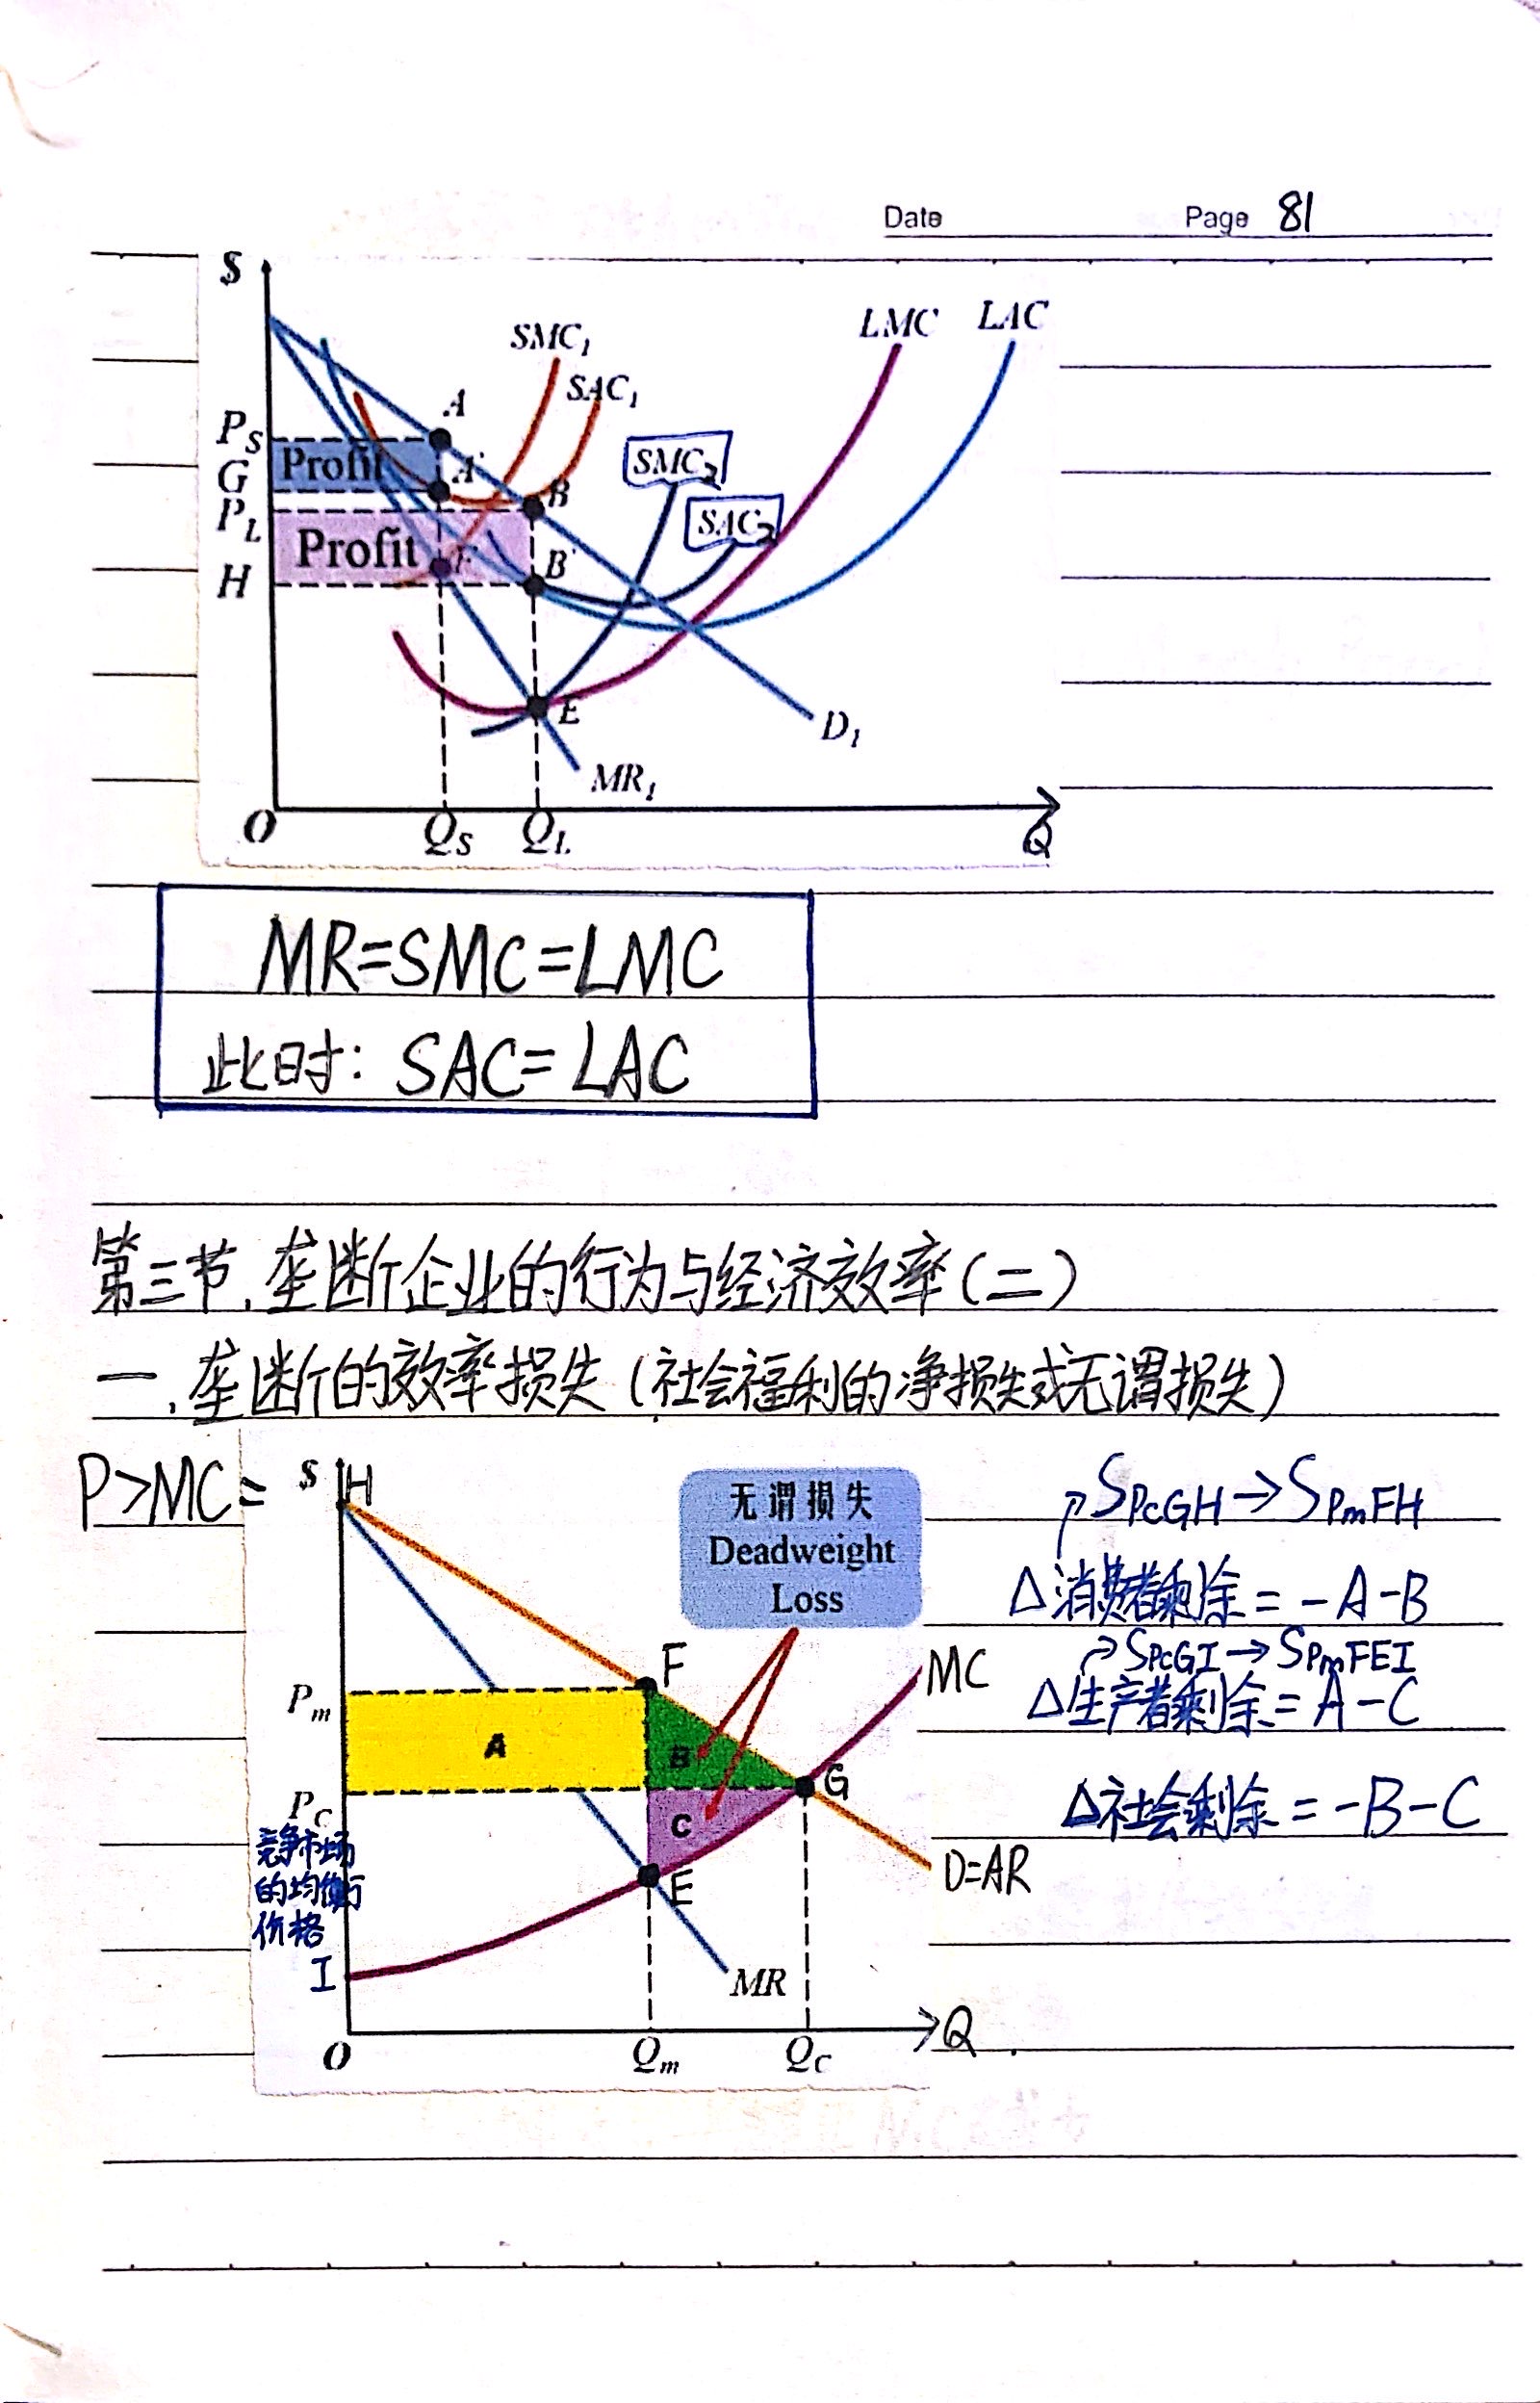 Date Page 81
$
SMC₁
LMC LAC
SAC₁
A
P_S
Profit
A'
G
SMC₂
P_L
B
SAC₂
Profit
F
B'
H
E
D₁
MR₁
O Q_S Q_L Q
MR=SMC=LMC
此时: SAC=LAC
第三节.垄断企业的行为与经济效率(二)
一.垄断的效率损失(社会福利的净损失或无谓损失)
P>MC=
$ H
无谓损失
Deadweight
Loss
S_PcGH→S_PmFH
△消费者剩余=-A-B
S_PcGI→S_PmFEI
△生产者剩余=A-C
△社会剩余=-B-C
F
MC
P_m
A
B
G
P_C
C
竞争市场
的均衡
价格
E
D=AR
I
MR
O Q_m Q_C Q